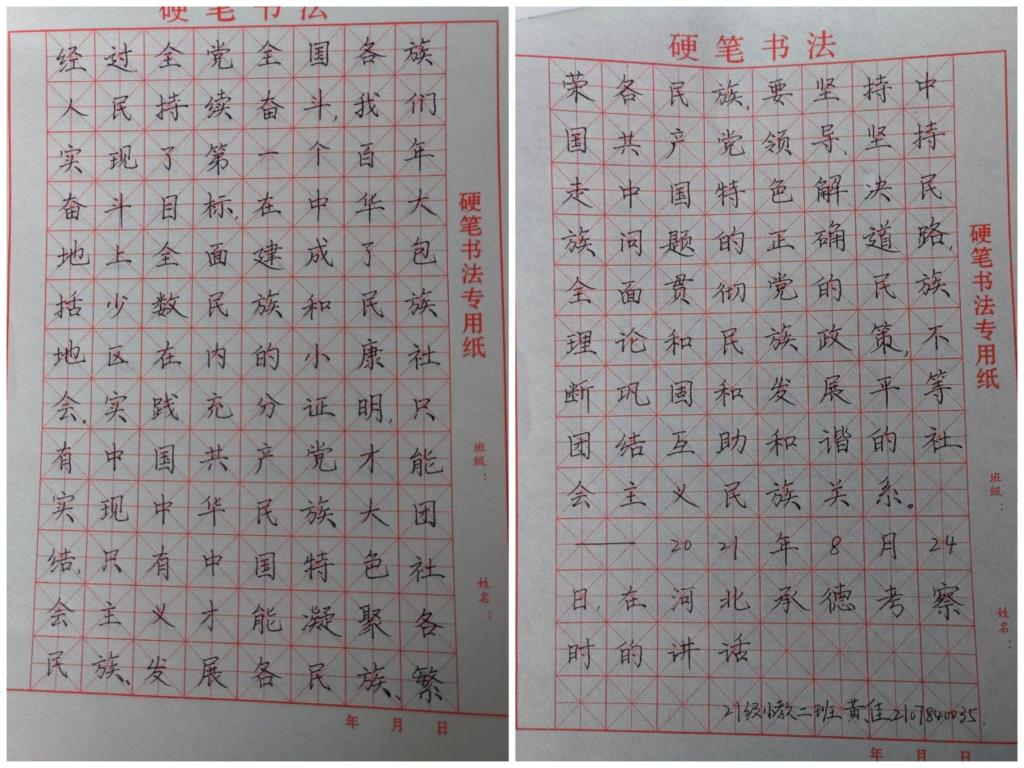 硬笔书法
经过全党全国各族
人民持续奋斗,我们
实现了第一个百年
奋斗目标,在中华大
地上全面建成了包
括少数民族和民族
地区在内的小康社
会。实践充分证明,只
有中国共产党才能
实现中华民族大团
结,只有中国特色社
会主义才能凝聚各
民族、发展各民族、繁
硬笔书法专用纸
班级:
姓名:
年 月 日
硬笔书法
荣各民族,要坚持中
国共产党领导,坚持
走中国特色解决民
族问题的正确道路,
全面贯彻党的民族
理论和民族政策,不
断巩固和发展平等
团结互助和谐的社
会主义民族关系。
——2021年8月24
日,在河北承德考察
时的讲话
21级小教二班黄佳2107840035.
硬笔书法专用纸
班级:
姓名:
年 月 日